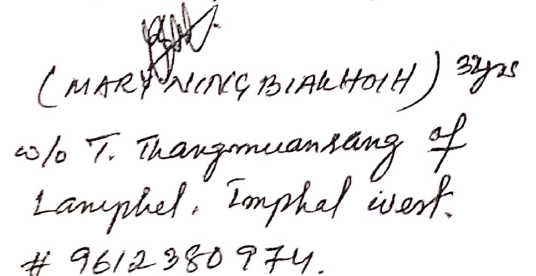 (MARY NINGBIAKHOIH) 32yrs
w/o T. Thangmuansang of
Lamphel. Imphal west.
# 9612380974.